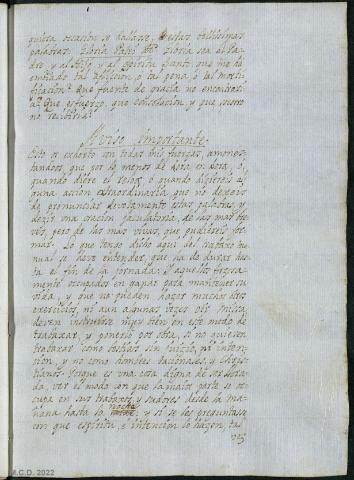 quiera occasión se hallasse, estas bellissimas
palabras. Gloria Patri etc. Gloria sea al Pa-
dre, y al Hijo, y al Spiritu Santo, que me ha
embiado tal aflicion, ò tal pena, ò tal morti-
ficacion. Que fuente de gracia no encontrari-
a? Que esfuerzo, que consolación, y que
no recibiria?
Aviso Importante.
Esto os exhorto con todas mis fuerzas, amones-
tandoos, que por lo menos de hora en hora, ò
quando diere el relox, ò quando hiziereis al-
guna acción extraordinaria, que no dexeis
de pronunciar devotamente estas palabras, y
dezir una oración jaculatoria, de las mas bre-
ves, pero de las mas vivas, que pudiereis for-
mar. Lo que tengo dicho aqui del trabaxo ma-
nual se deve entender, que ha de durar has-
ta el fin de la jornada. Y aquellos
ocupados en ganar para mantener su
vida, y que no pueden hazer muchos otros
exercicios, ni aun algunas vezes oìr missa,
deven instruirse muy bien en este modo de
trabaxar, y ponerlo por obra, si no quieren
trabaxar como bestias sin juizio, ni inten-
cion, y no como hombres racionales, y Chris-
tianos. Porque es una cosa digna de ser llora-
da, ver el modo con que la maior parte se oc-
cupa en sus trabaxos, y sudores desde la ma-
ñana hasta la noche: y si se les preguntasse
con que espiritu, è intención lo hazen, tal
vez
A.C.D. 2022